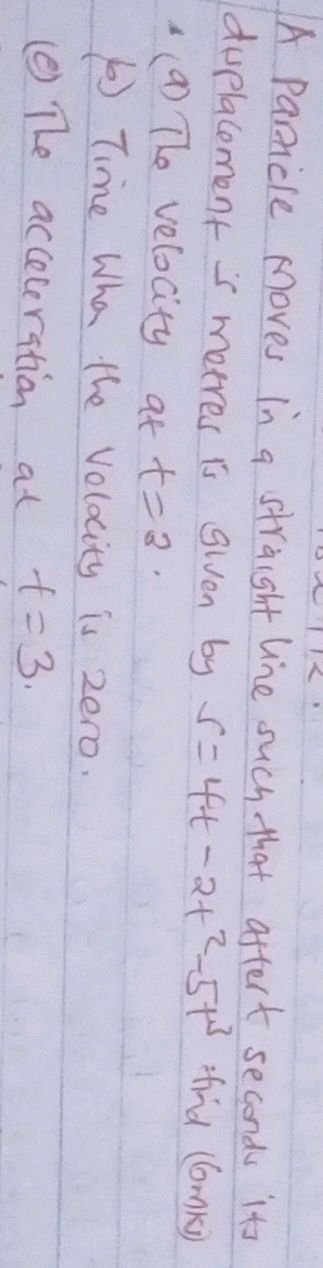 A Particle moves in a straight line such that after t seconds its
displacement s metres is given by s = 4t - 2t² - 5t³ find (6mks)
(a) The velocity at t = 2.
(b) Time When the velocity is zero.
(c) The acceleration at t = 3.